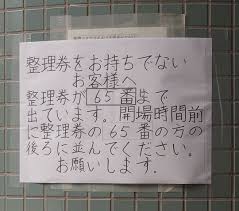 整理券をお持ちでない
お客様へ
整理券が65番まで
出ています。開場時間前
に整理券の65番の方の
後ろに並んでください。
お願いします.